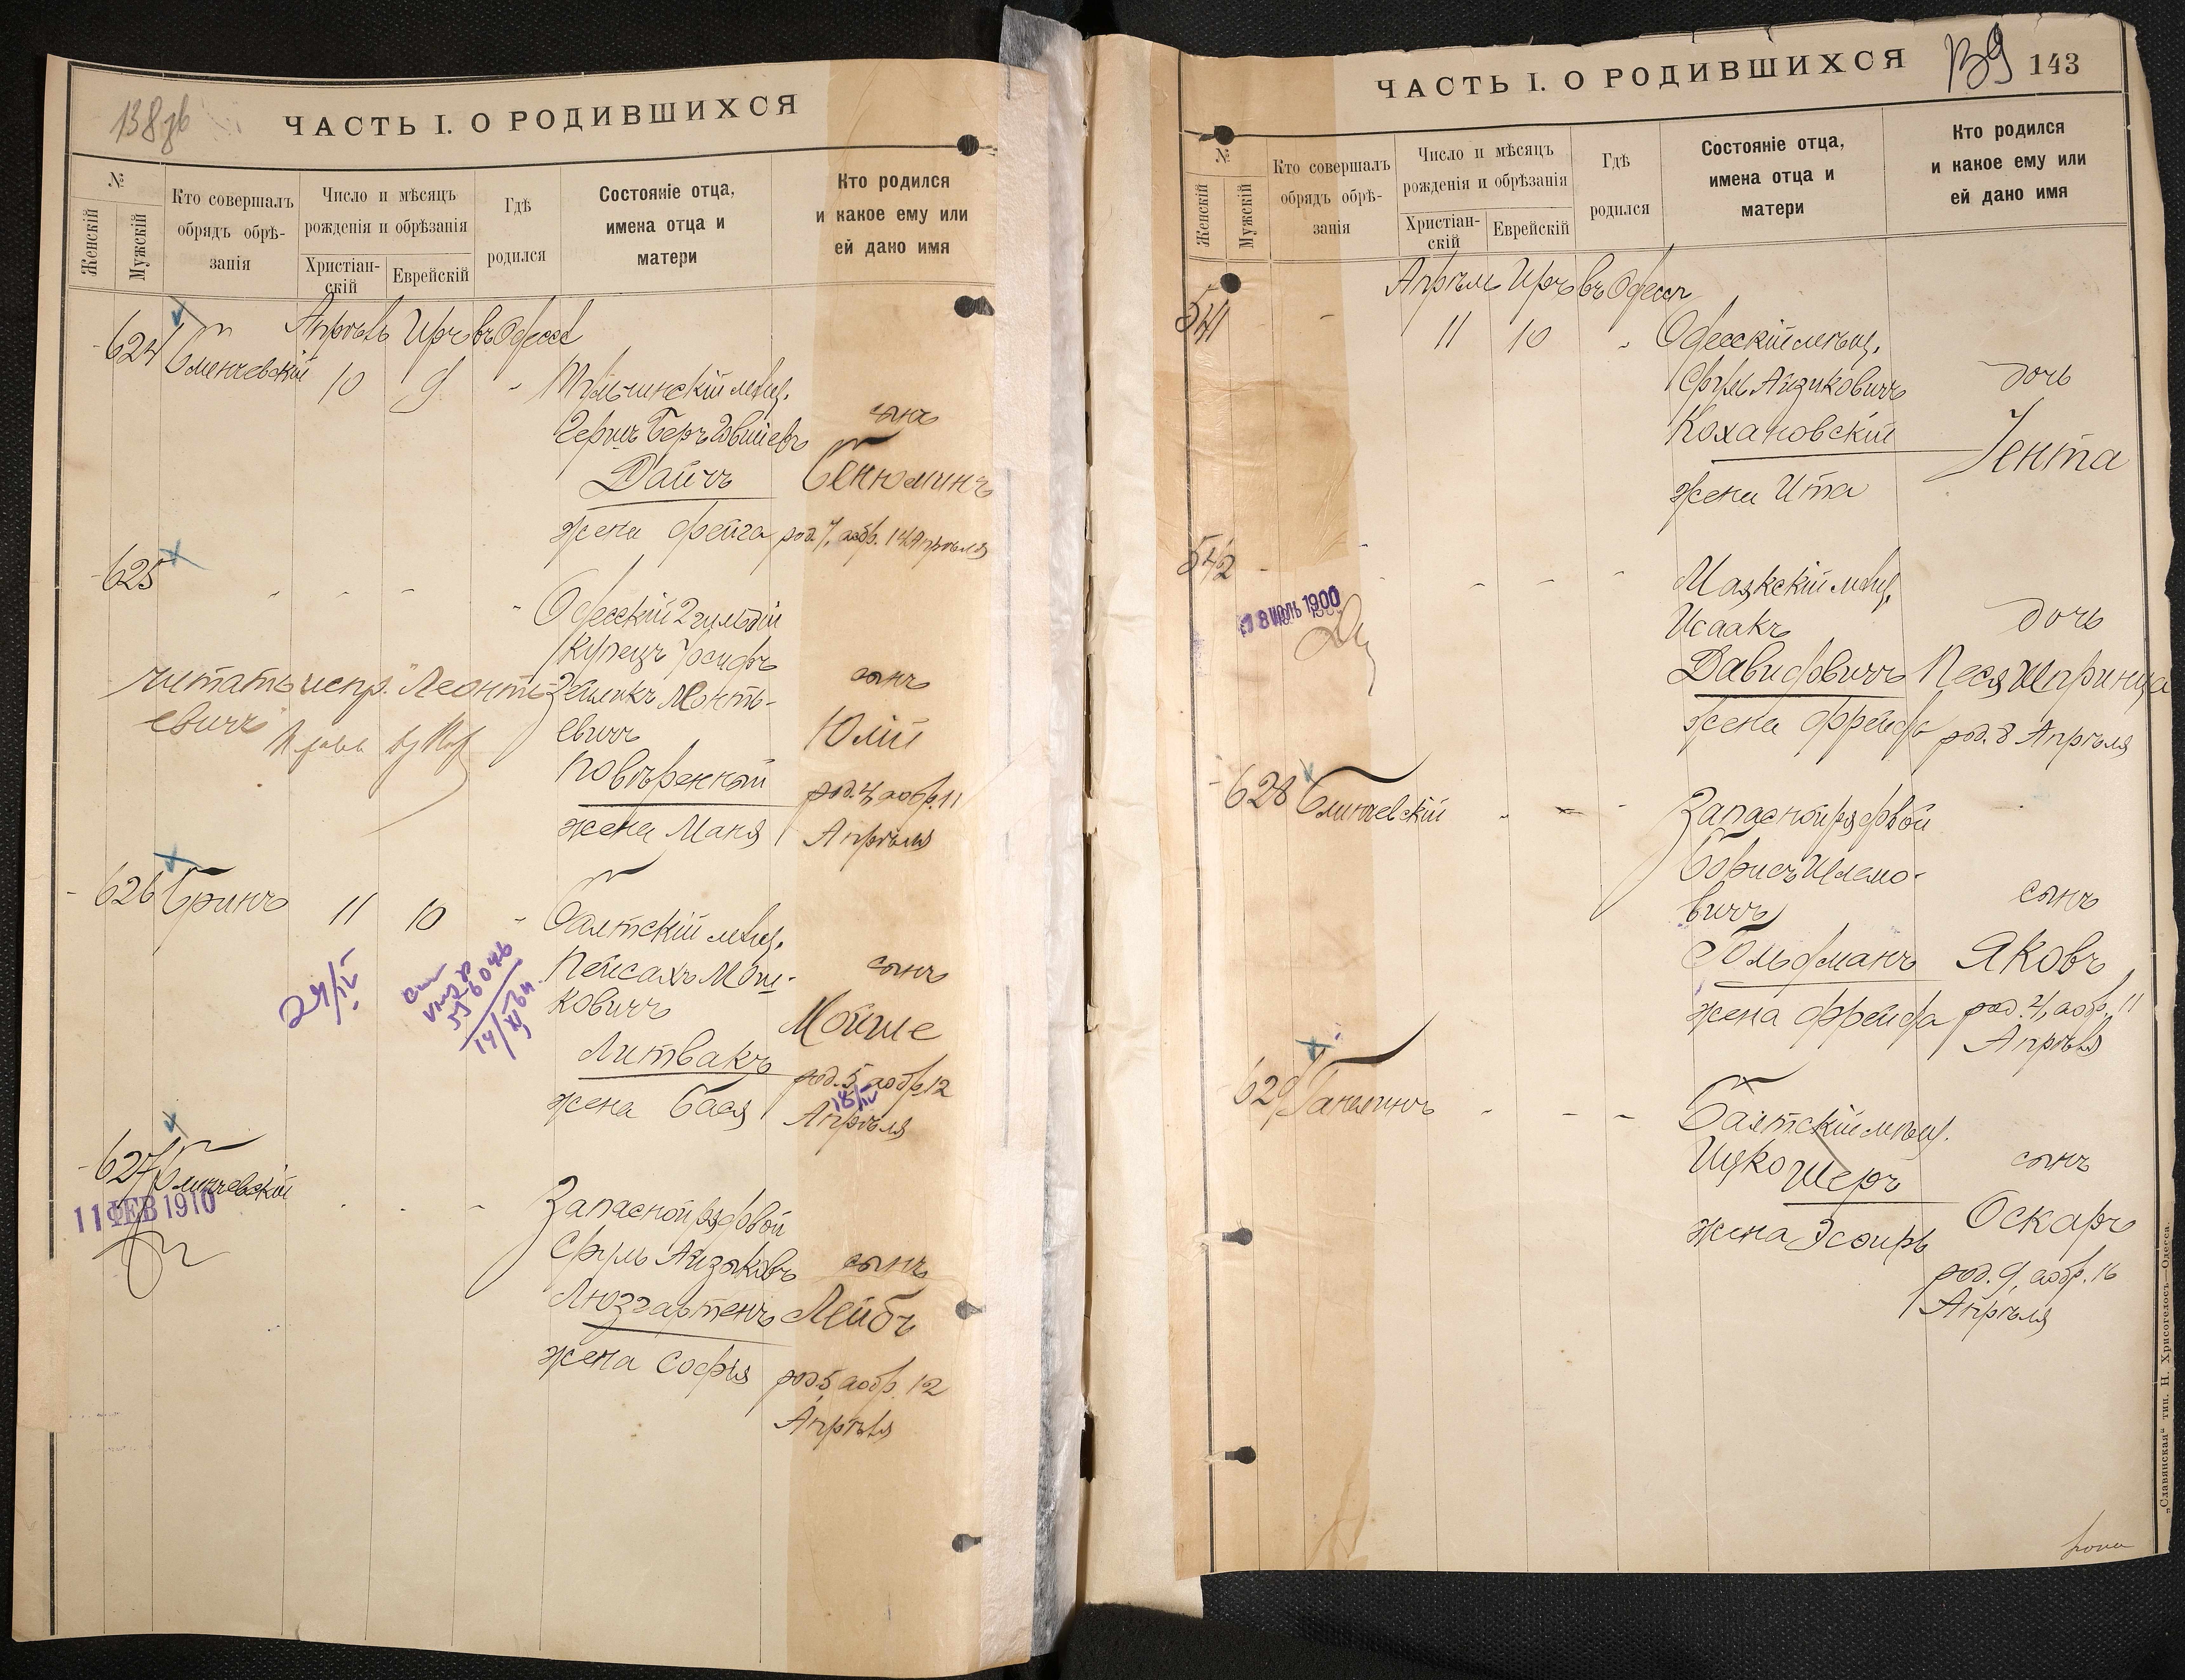 138 об
ЧАСТЬ I. О РОДИВШИХСЯ
№
Женскій
Мужскій
Кто совершалъ обрядъ обрѣ-занія
Число и мѣсяцъ рожденія и обрѣзанія
Христіан-скій
Еврейскій
Гдѣ родился
Состояніе отца, имена отца и матери
Кто родился и какое ему или ей дано имя
Апрѣль Иръ въ Одессѣ
624
Блинчевскій
10
9
Тульчинскій мѣщ.
Гершъ Беръ Іовшіевъ
сынъ
Дайчъ
Бенюминъ
жена Фейга
род. 7, а обр. 14 Апрѣля
625
Одесскій 2 гильдіи
купецъ Іосифъ
Зейликъ Леонть-
евичъ
сынъ
Юлій
читать испр. "Леонть-
евичъ"
Повѣренный
род. 4, а обр. 11
жена Маня
Апрѣля
626
Бринъ
11
10
Балтскій мѣщ.
Пейсахъ Мош-
ковичъ
сынъ
Мойше
Литвакъ
род. 5 а обр. 12
жена Бася
18/IV
Апрѣля
24/IV
627
Блинчевскій
11 ФЕВ 1910
Запасной рядовой
Сруль Айзиковъ
сынъ
Люзгартенъ
Лейбъ
жена Софья
род 5 а обр. 12
Апрѣля
ЧАСТЬ I. О РОДИВШИХСЯ
139
143
№
Женскій
Мужскій
Кто совершалъ обрядъ обрѣ-занія
Число и мѣсяцъ рожденія и обрѣзанія
Христіан-скій
Еврейскій
Гдѣ родился
Состояніе отца, имена отца и матери
Кто родился и какое ему или ей дано имя
Апрѣль Иръ въ Одессѣ
541
11
10
Одесскій мѣщ.
Сруль Айзиковичъ
дочь
Кохановскій
Іента
жена Ита
542
Маякскій мѣщ.
8 ІЮЛЬ 1900
Исаакъ
дочь
Давидовичъ
Песя Шпринца
жена Фрейда
род. 8 Апрѣля
628
Блинчевскій
Запасной рядовой
Борисъ Шлемо-
вичъ
сынъ
Гольдманъ
Яковъ
жена Фрейда
род. 4, а обр. 11
Апрѣля
629
Галелинъ
Балтскій мѣщ.
Ицко Шеръ
сынъ
Оскаръ
жена Эсфирь
род. 9, а обр. 16
Апрѣля
„Славянская“ тип. Н. Хрисогелосъ—Одесса.